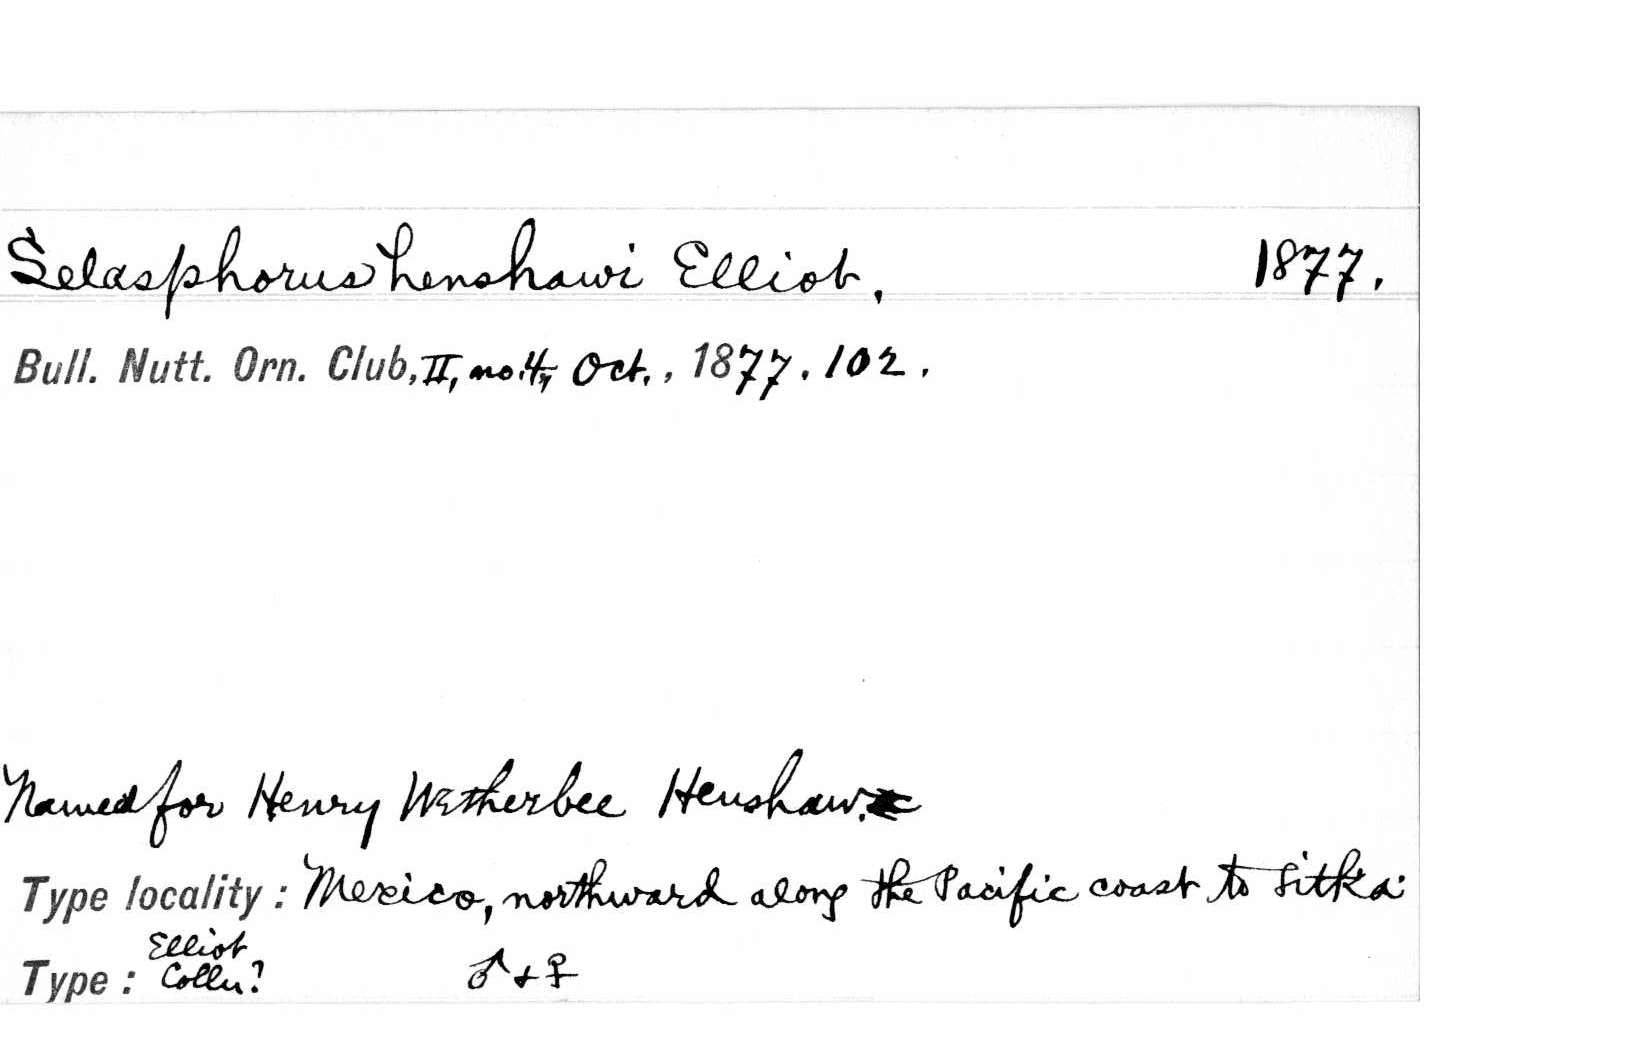 Selasphorus henshawi Elliot, 1877.
Bull. Nutt. Orn. Club, II, no. 4, Oct., 1877. 102.
Named for Henry Wetherbee Henshaw.
Type locality: Mexico, northward along the Pacific coast to Sitka.
Elliot
Type: Colln? ♂ + ♀